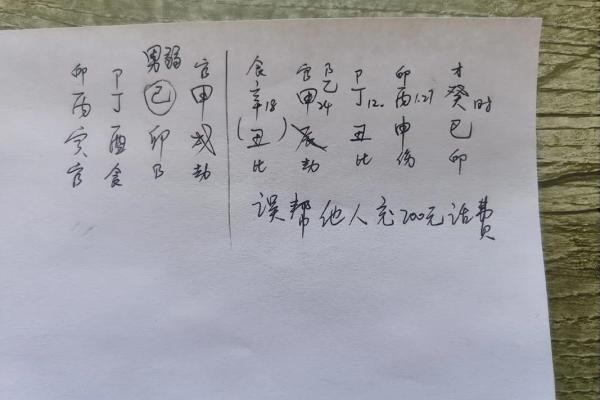 印 卩 男弱 官 食 官 卩 卩 印 才
丙 丁 己 甲 辛18 甲24 乙 丁12. 丙1.27 癸时
寅 酉 卯 戌 (丑) 辰 丑 申 巳
官 食 卩 劫 比 劫 比 伤 印
误帮他人充200元话费